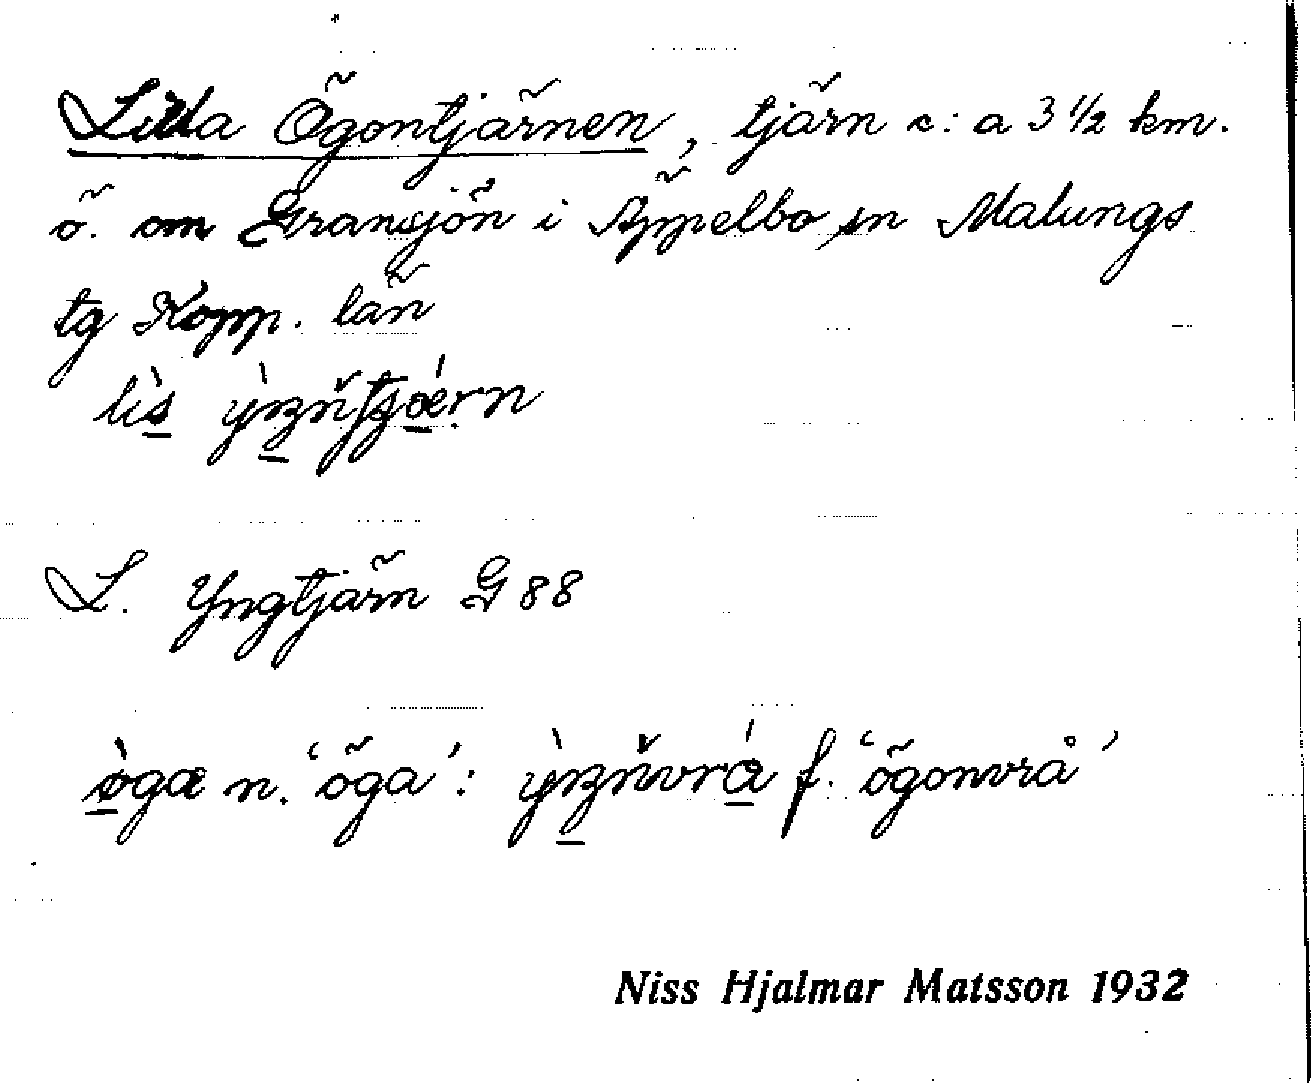 Lilla Ögontjärnen, tjärn c:a 3 1/2 km.
ö. om Gransjön i Äppelbo sn Malungs
tg Kopp. län
L. Yngtjärn G 88
n. 'öga': f. 'ögonvrå'
Niss Hjalmar Matsson 1932